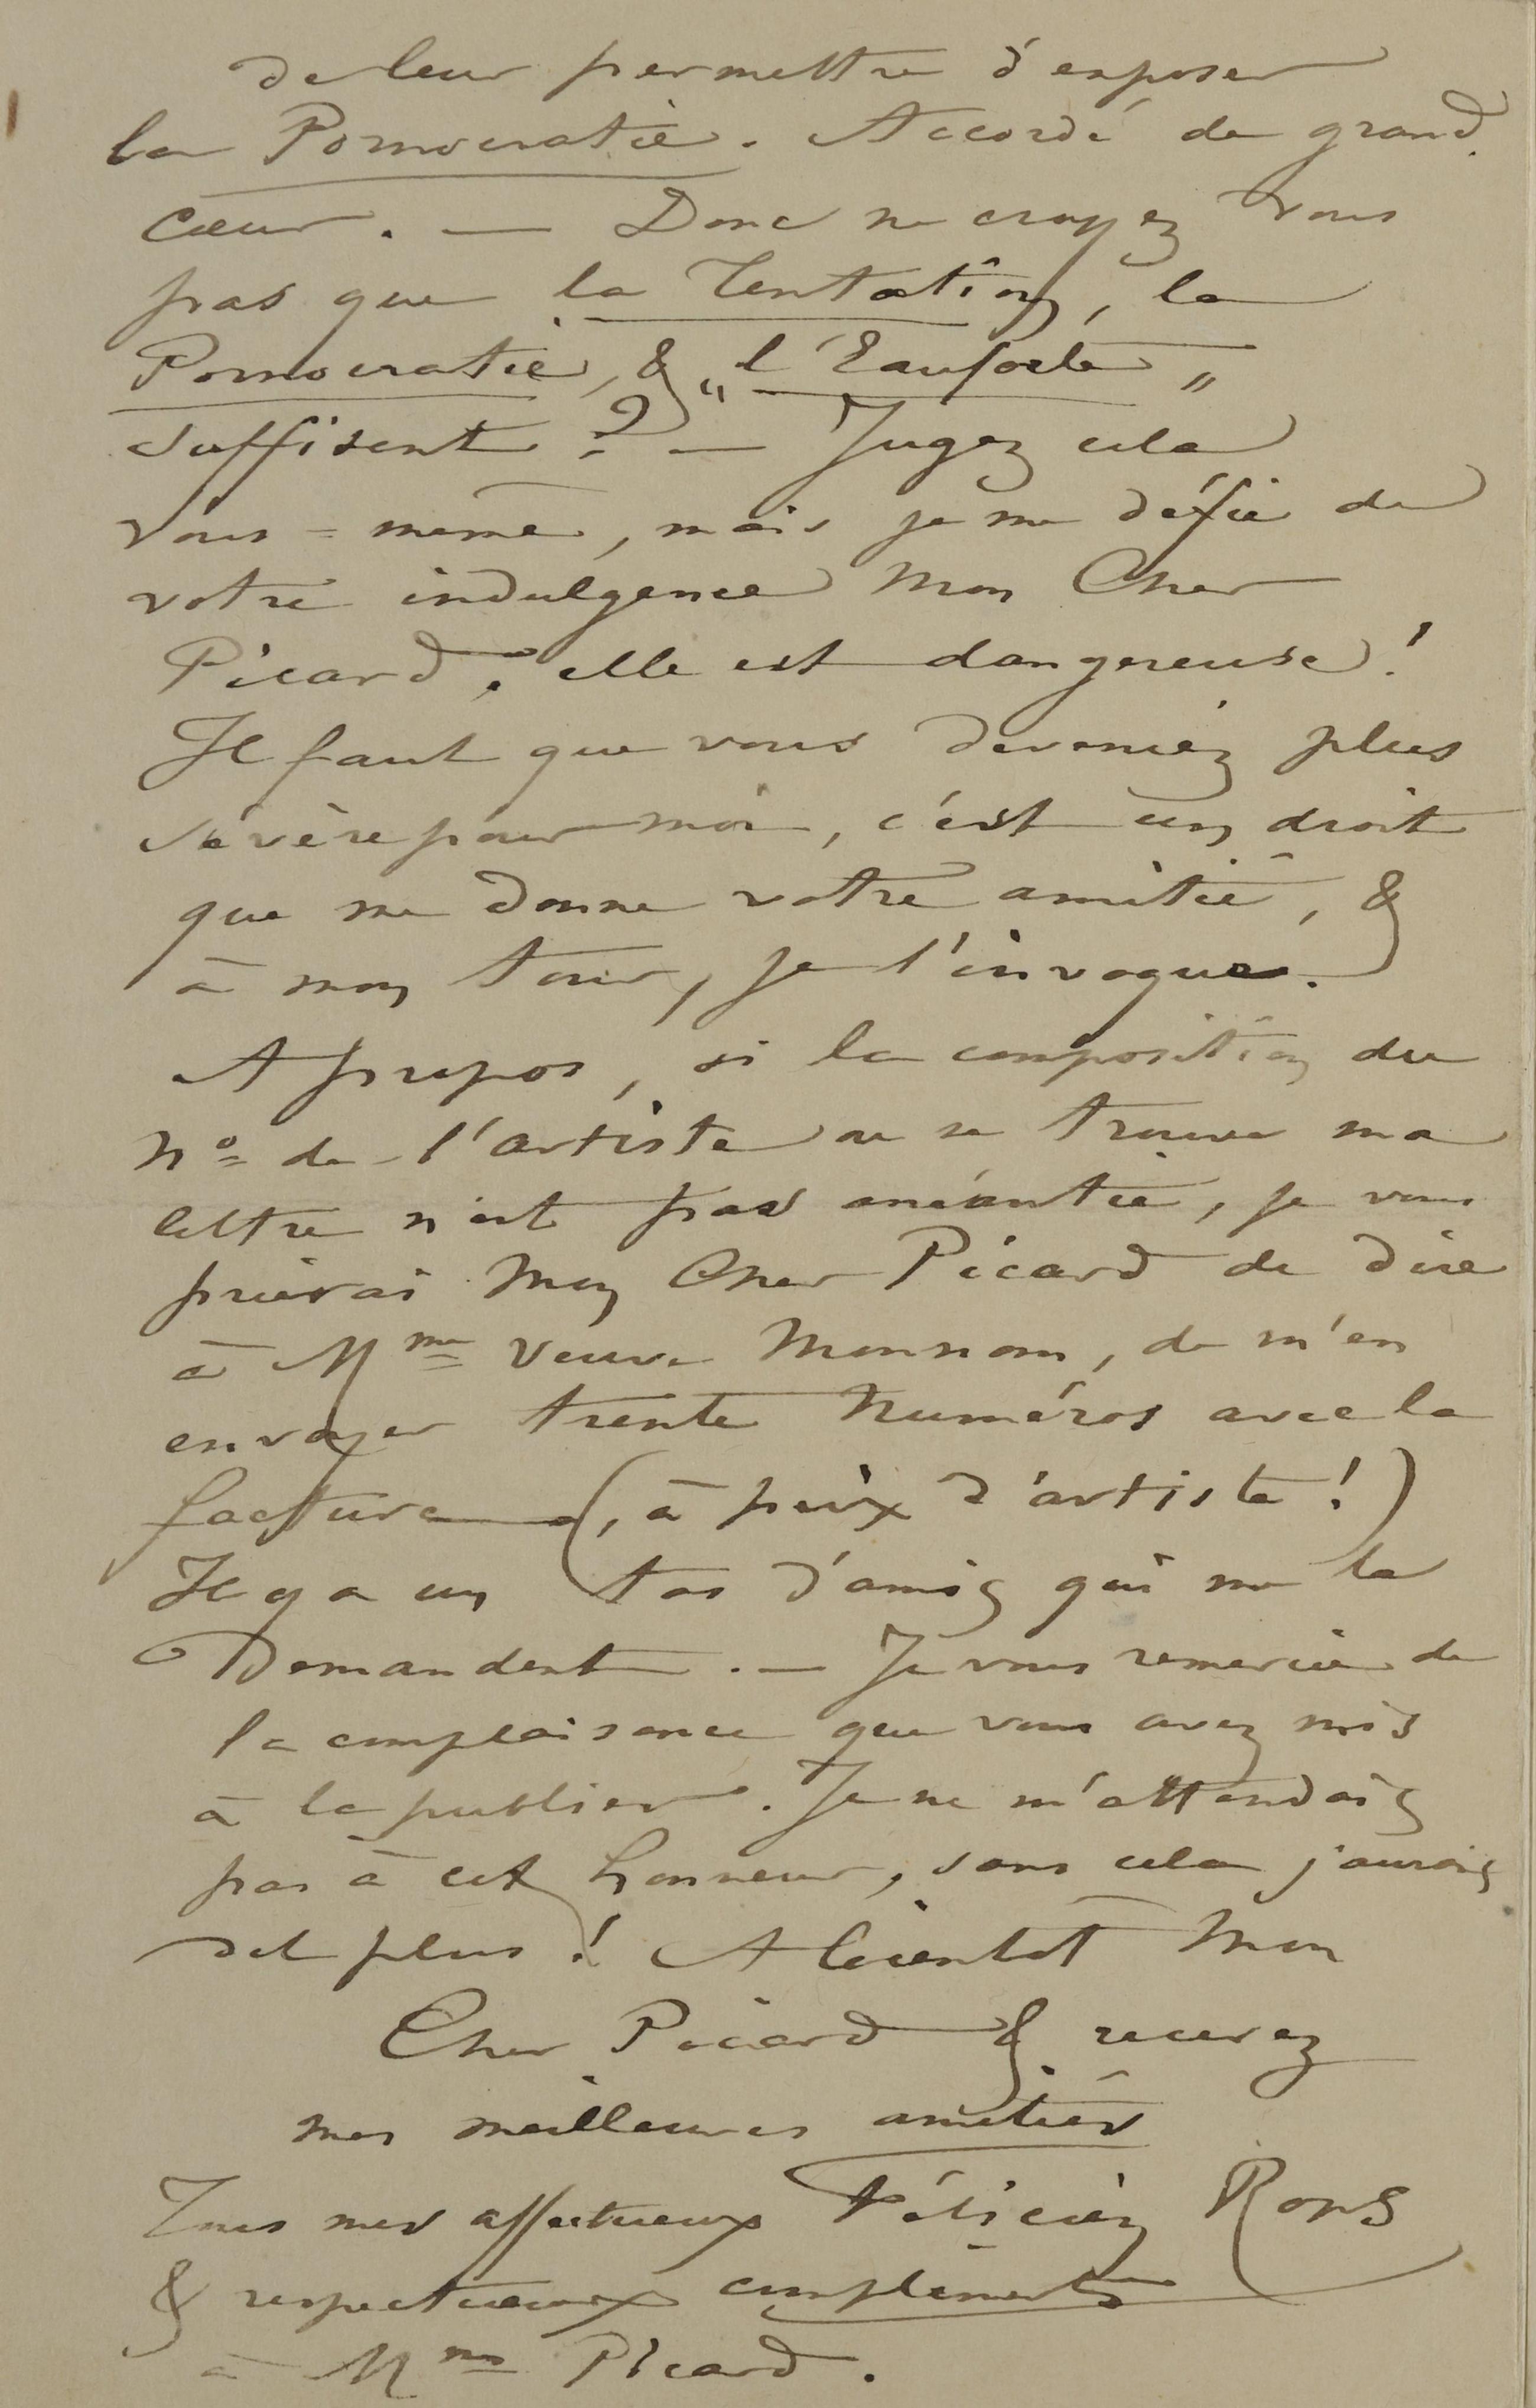 de leur permettre d'exposer
la Pornocratie. Accordé de grand
cœur. — Donc ne croyez vous
pas que la Tentation, la
Pornocratie, & „l'Eauforte„
suffisent ? — Jugez cela
vous-même, mais je me défie de
votre indulgence Mon Cher
Picard ; elle est dangereuse !
Il faut que vous deveniez plus
sévère pour moi, c'est un droit
que me donne votre amitié, &
à mon tour, je l'invoque.
A propos, si la composition du
No de l'artiste ou se trouve ma
lettre n'est pas anéantie, je vous
prierai Mon Cher Picard de dire
à Mme Veuve Monnom, de m'en
envoyer trente Numéros avec la
facture (, à prix d'artiste !)
Il y a un tas d'amis qui me la
Demandent. — Je vous remercie de
la complaisance que vous avez mis
à la publier. Je ne m'attendais
pas à cet honneur, sans cela j'aurais
det plus ! A bientot Mon
Cher Picard & recevez
mes meilleures amitiés
Tous mes affectueux Félicien Rops
& respectueux compliments
à Mme Picard.